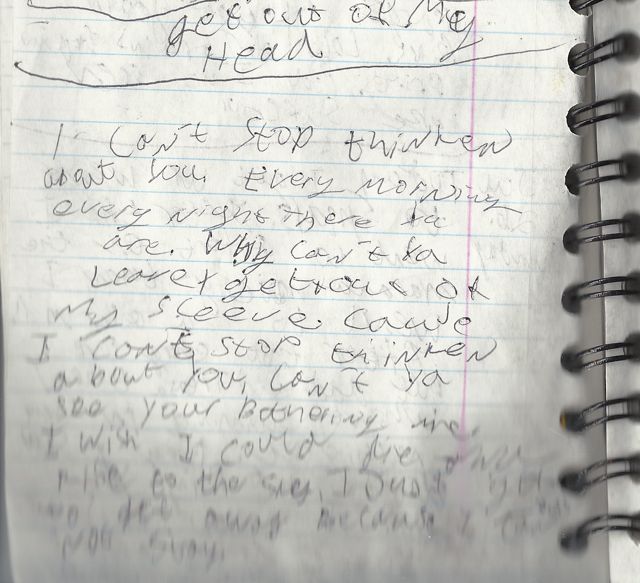 get out of My
Head
I Can't Stop thinken
about You. Every Morning
every night There ya
are. Why Can't ya
Leave get out of
My Sleeve. Cause
I Can't Stop thinken
about You, Can't ya
see your Bothering me.
I wish I could
to the sky, I Just
to get away Because I
Not Stay.